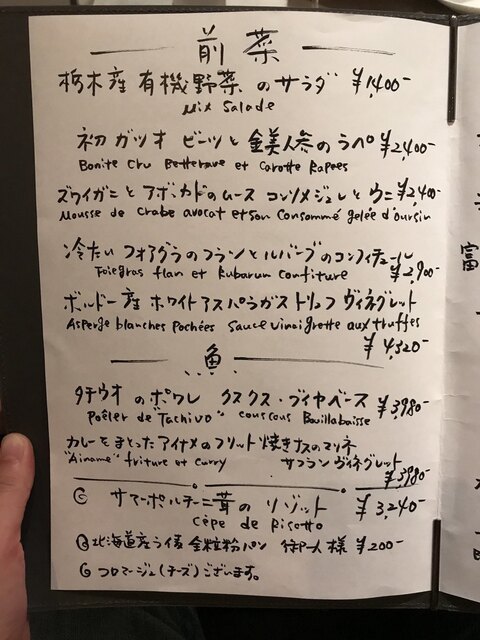 前菜
栃木産 有機野菜 のサラダ ¥1,400-
Mix Salade
初ガツオ ビーツと金美人参のラペ ¥2,400-
Bonite Cru Betterave et Carotte Rapees
ズワイガニとアボカドのムース コンソメジュレとウニ ¥2,400-
Mousse de Crabe avocat et son Consommé gelée d'oursin
冷たいフォアグラのフランとルバーブのコンフィチュール
Foiegras flan et Rubarum confiture ¥2,900-
ボルドー産 ホワイトアスパラガス トリュフ ヴィネグレット
Asperge blanches Pochées Sauce vinaigrette aux truffes
¥4,320-
魚
タチウオ のポワレ クスクス・ブイヤベース ¥3,980-
Poêler de "Tachiuo" couscous Bouillabaisse
カレーをまとったアイナメのフリット 焼きナスのマリネ
"Ainame" friture et Curry サフランヴィネグレット
¥3,980-
サマーポルチーニ茸の リゾット ¥3,240-
Cèpe de Risotto
北海道産ライ麦 全粒粉パン 御一人様 ¥200-
フロマージュ(チーズ)ございます。